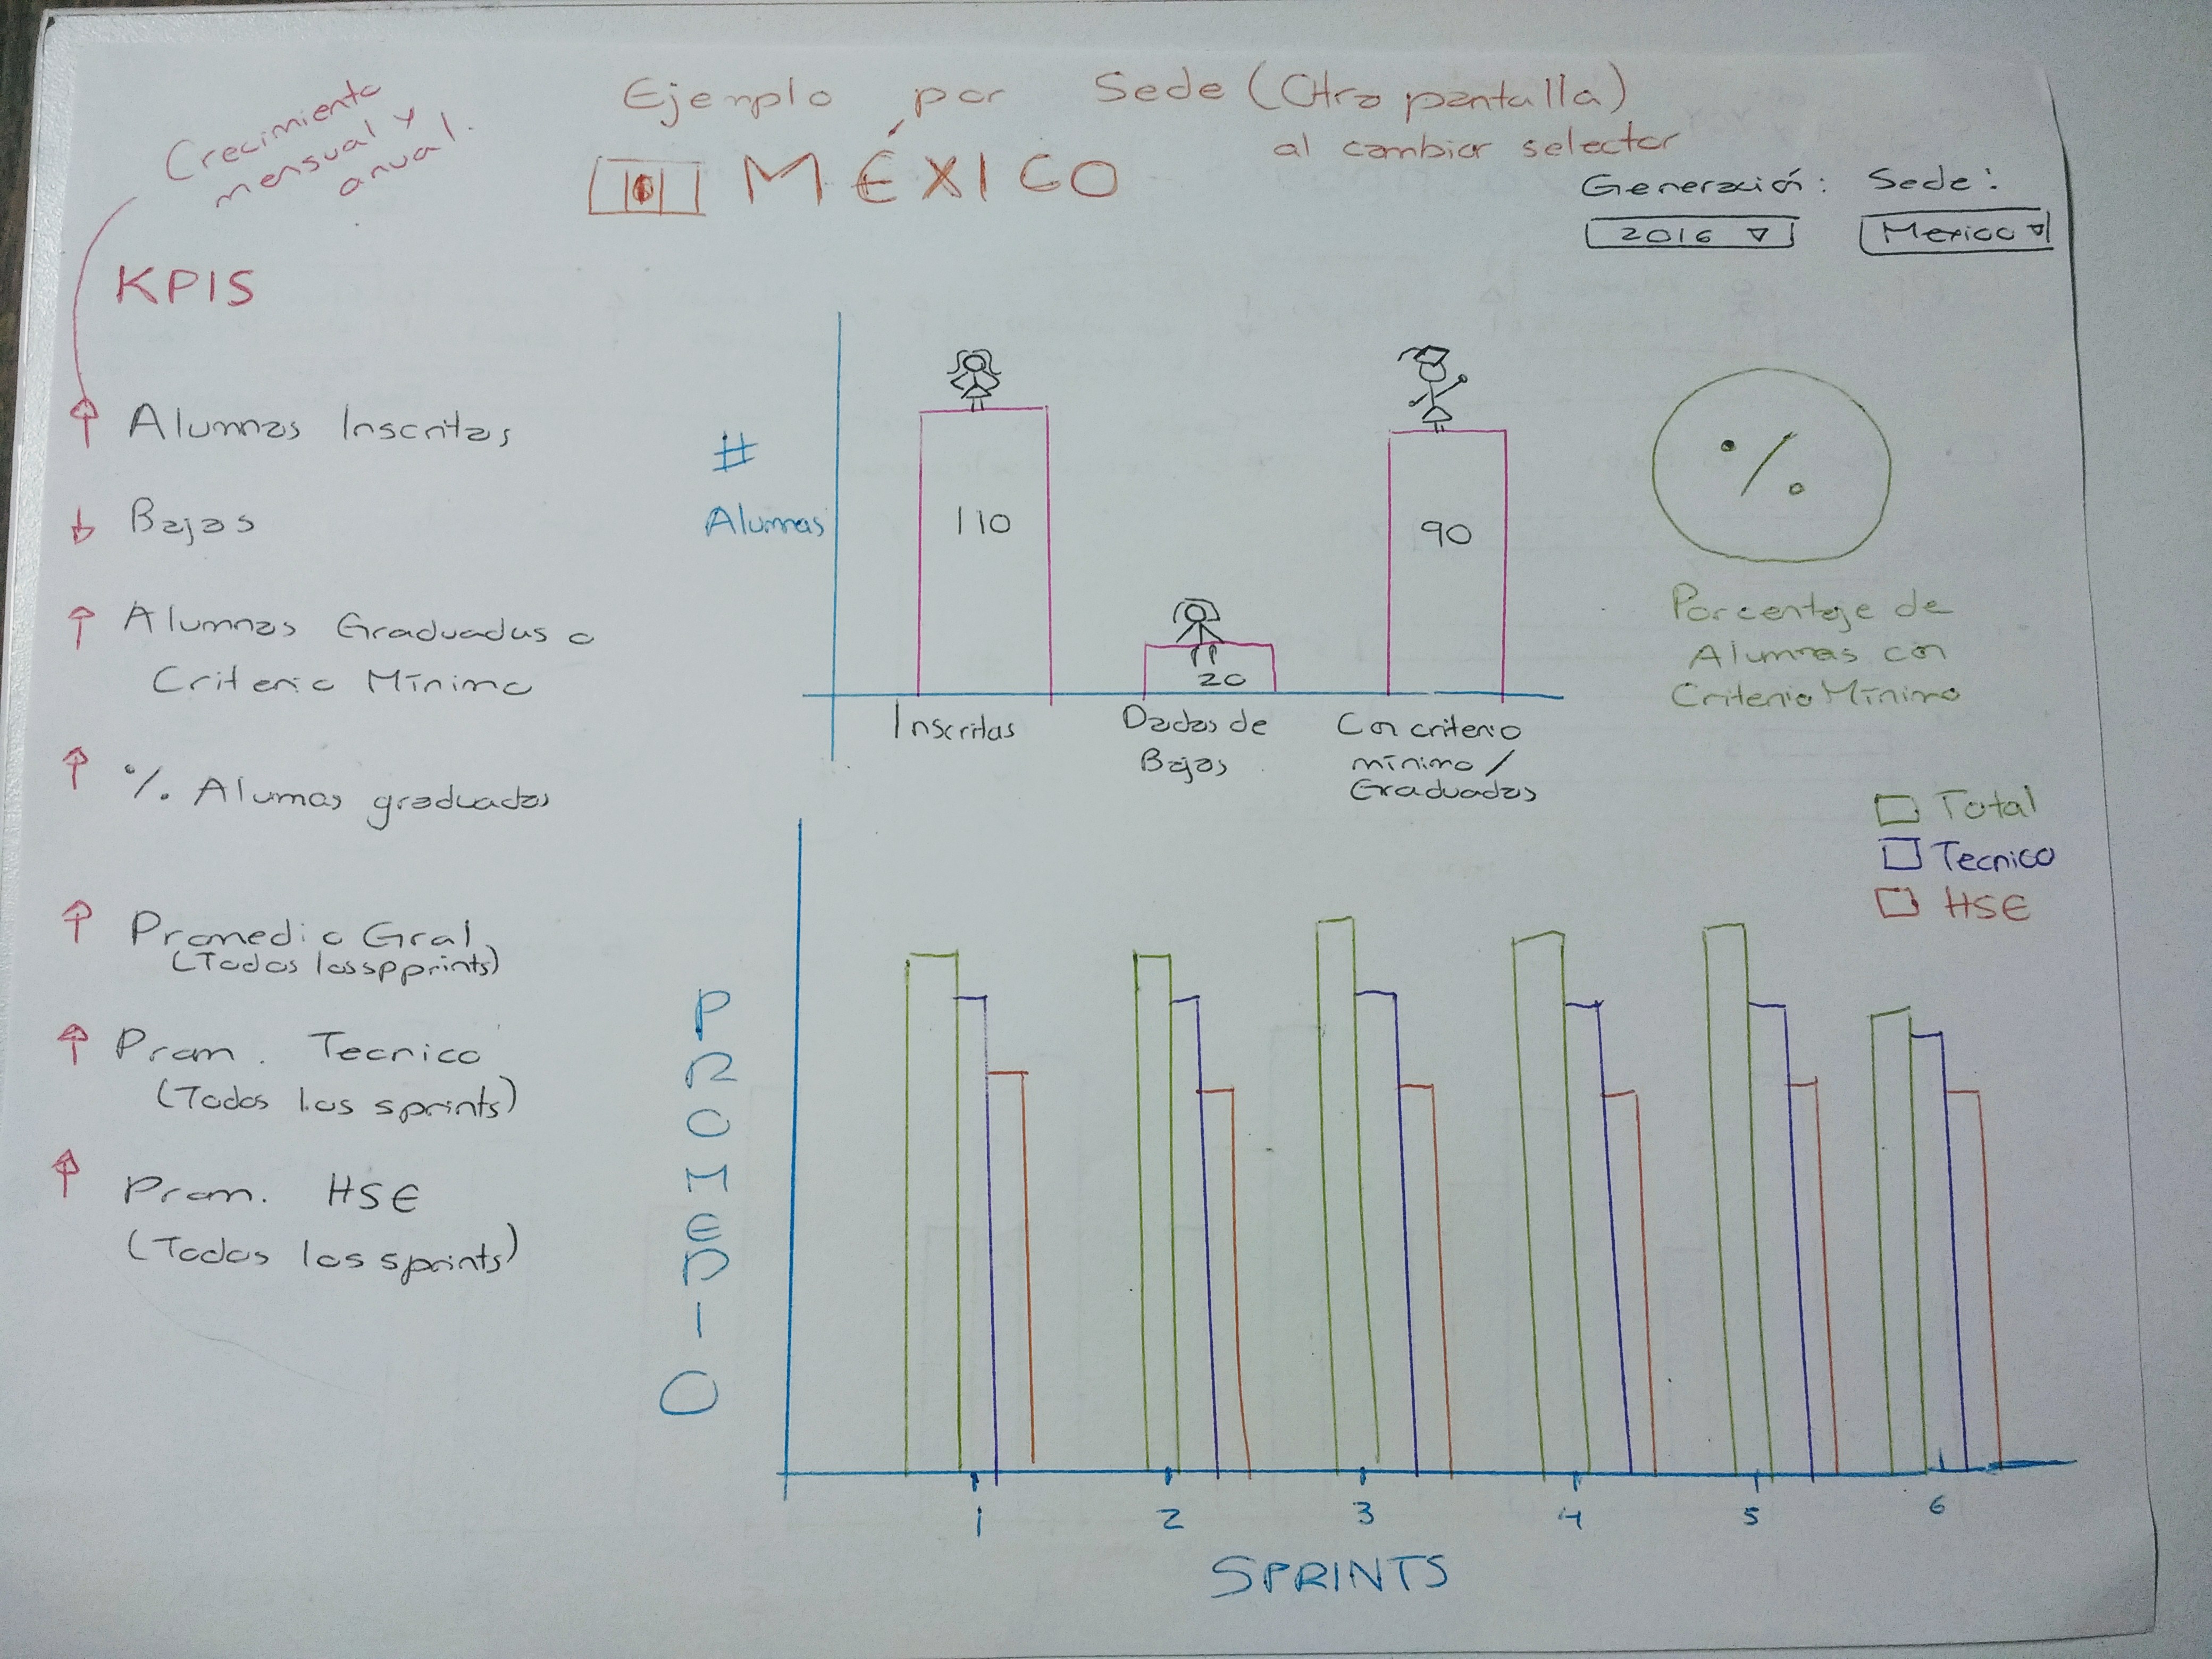 Crecimiento
mensual y
anual.
Ejemplo por Sede (Otra pantalla)
al cambiar selector
MÉXICO
Generación: Sede:
2016 Mexico
KPIS
Alumnas Inscritas
Bajas
Alumnas Graduadas o
Criterio Mínimo
% Alumas graduadas
Promedio Gral
(Todos los spprints)
Prom. Tecnico
(Todos los sprints)
Prom. HSE
(Todos los sprints)
#
Alumnas
110
20
90
Inscritas
Dadas de
Bajas
Con criterio
mínimo /
Graduadas
%
Porcentaje de
Alumnas con
Criterio Mínimo
Total
Tecnico
HSE
PROMEDIO
1 2 3 4 5 6
SPRINTS